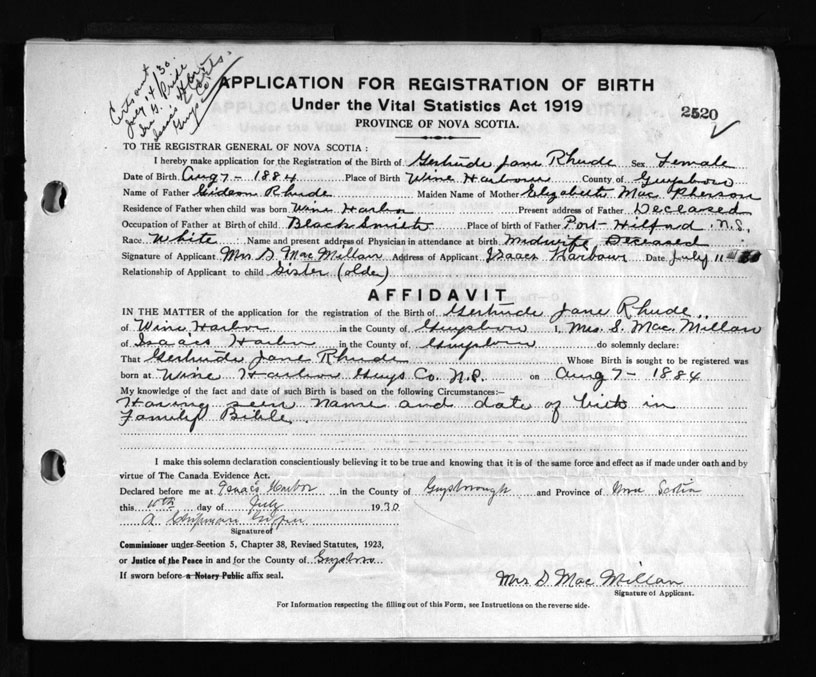 Certs out
July 14/30.
APPLICATION FOR REGISTRATION OF BIRTH
Under the Vital Statistics Act 1919
PROVINCE OF NOVA SCOTIA.
2520
TO THE REGISTRAR GENERAL OF NOVA SCOTIA:
I hereby make application for the Registration of the Birth of Gertrude Jane Rhude Sex Female
Date of Birth Aug 7 - 1884 Place of Birth Wine Harbour County of Guysboro
Name of Father Gideon Rhude Maiden Name of Mother Elizabeth MacPherson
Residence of Father when child was born Wine Harbor Present address of Father Deceased
Occupation of Father at Birth of child Black Smith Place of birth of Father Port Hilford N.S.
Race White Name and present address of Physician in attendance at birth Midwife Deceased
Signature of Applicant Mrs S. MacMillan Address of Applicant Isaacs Harbour Date July 11
Relationship of Applicant to child Sister (older)
AFFIDAVIT
IN THE MATTER of the application for the registration of the Birth of Gertrude Jane Rhude
of Wine Harbor in the County of Guysboro I, Mrs. S. MacMillan
of Isaacs Harbor in the County of Guysboro do solemnly declare:
That Gertrude Jane Rhude Whose Birth is sought to be registered was
born at Wine Harbor Guys Co. N.S. on Aug 7 - 1884
My knowledge of the fact and date of such Birth is based on the following Circumstances:—
Having seen name and date of birth in
Family Bible.
I make this solemn declaration conscientiously believing it to be true and knowing that it is of the same force and effect as if made under oath and by
virtue of The Canada Evidence Act.
Declared before me at Isaacs Harbor in the County of Guysborough and Province of Nova Scotia
this day of July 1930
Signature of
Commissioner under Section 5, Chapter 38, Revised Statutes, 1923,
or Justice of the Peace in and for the County of Guysboro
If sworn before a Notary Public affix seal.
Mrs S. MacMillan
Signature of Applicant.
For Information respecting the filling out of this Form, see Instructions on the reverse side.